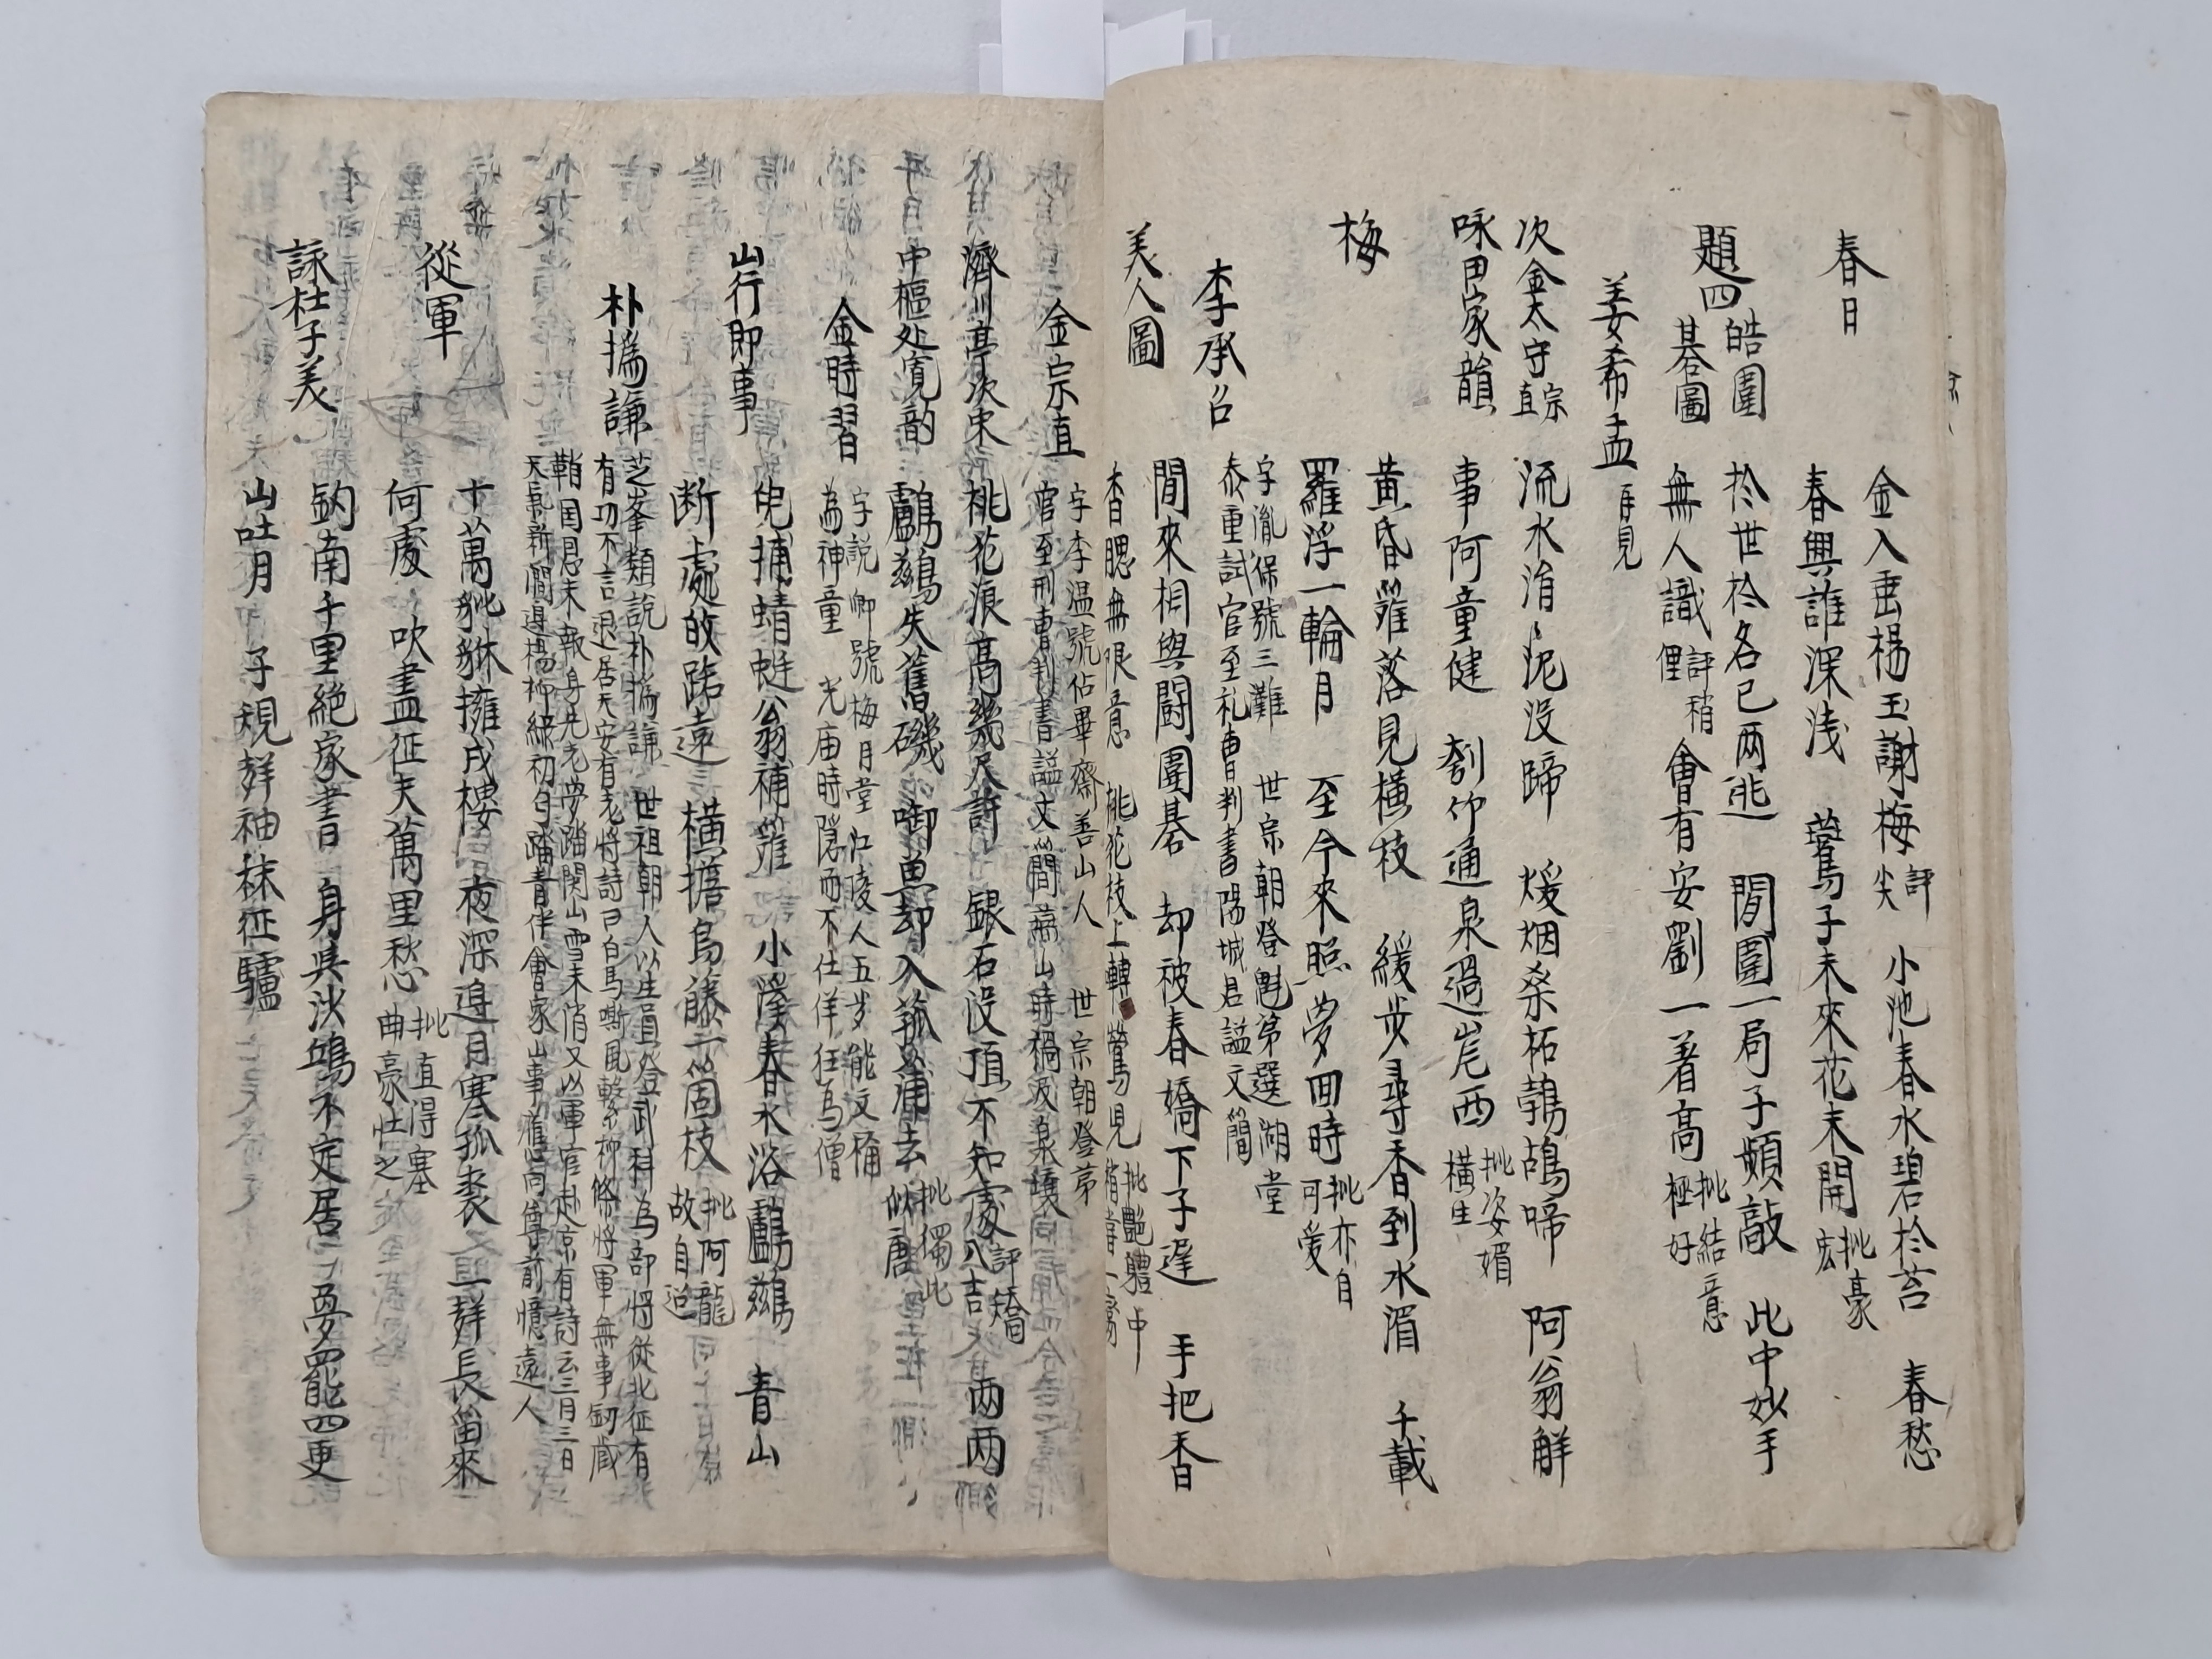 春日
金入垂楊玉謝梅 評尖 小池春水碧於苔 春愁
春興誰深浅 鷰子未來花未開 批豪宏
題四皓圍碁圖
於世於名已两逃 閒圍一局子頻敲 此中妙手
無人識 評稍俚 會有安劉一著高 批結意極好
姜希孟 再見
次金太守宗直
咏田家韻
流水涓〻泥没蹄 煖烟桑柘鵓鴣啼 阿翁解
事阿童健 刳竹通泉過岸西 批姿媚橫生
梅
黄昏籬落見橫枝 緩步尋香到水湄 千載
羅浮一輪月 至今來照夢回時 批亦自可爱
李承召
字胤保號三灘 世宗朝登魁第選湖堂
泰重試官至礼曹判書陽城君謚文簡
美人圖
閒來相與闘圍碁 却被春嬌下子遅 手把香
香腮無限意 桃花枝上轉鶯兒 批艶體中
金宗直
字季温號佔畢齋善山人 世宗朝登第
官至刑曹判書謚文簡燕山時禍及泉壤
濟川亭次宋
中樞处寛韵
桃花浪高幾尺許 銀石没頂不知處 評矯 两两
鸕鶿失舊磯 啣魚却入菰蒲去 批獨此似唐
金時習
字説卿號梅月堂江陵人五岁能文稱
為神童 光庙時隠而不仕佯狂為僧
山行即事
兒捕蜻蜓翁補籬 小溪春水浴鸕鶿 青山
断處皈路遠 橫擔烏藤一箇枝 批阿龍故自迢
朴撝謙
芝峯類說朴撝謙 世祖朝人以生員登武科為部将從北征有
有功不言退居天安有老将詩曰白馬嘶風繫柳條將軍無事釼戚
鞘国恩未報身先老夢踏関山雪未消又以軍官赴京有詩云三月三日
天氣新澗邊楊柳緑初匀踏青伴會家山事雁向尊前憶遠人
從軍
十萬貔貅擁戍樓 夜深邊月寒狐裘 一聲長笛來
何處 吹盡征夫萬里愁 批直得塞曲豪壮之
詠杜子美
釼南千里絶家書 身與沙鴎不定居 夢罷四更
山吐月 子規聲袖袜征驢